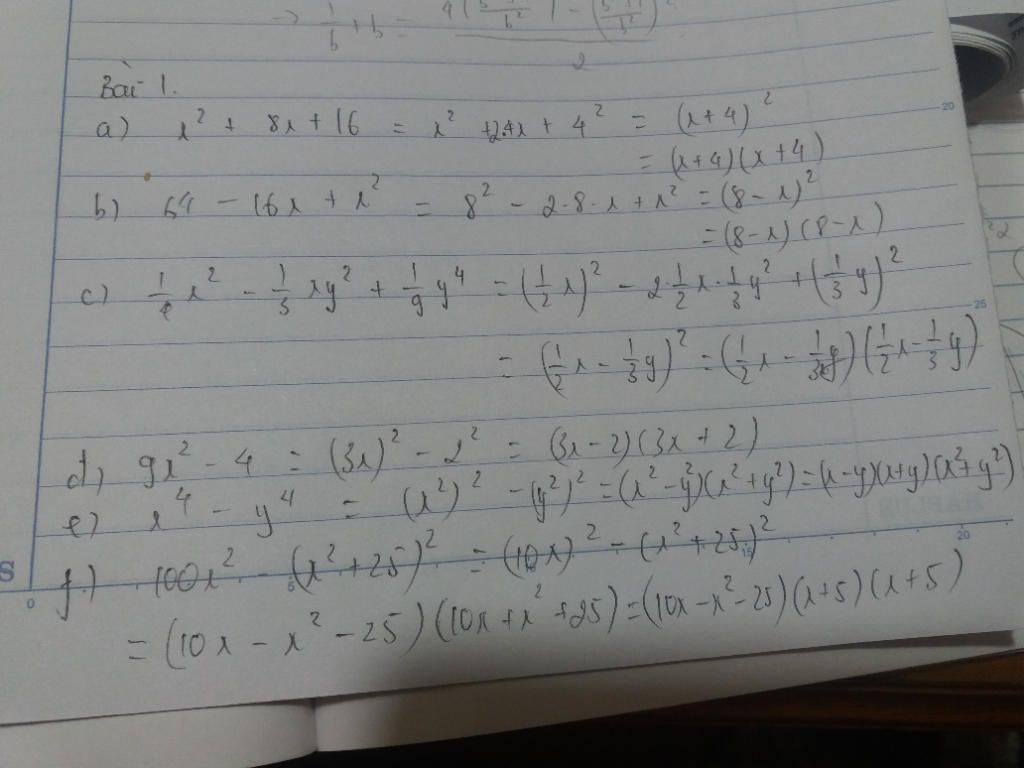 → 1/b + b =
2
Bài 1.
a) x² + 8x + 16 = x² + 2.4x + 4² = (x + 4)²
= (x + 4)(x + 4)
b) 64 - 16x + x² = 8² - 2·8·x + x² = (8 - x)²
= (8 - x)(8 - x)
c) 1/4 x² - 1/3 xy² + 1/9 y⁴ = (1/2 x)² - 2·1/2 x·1/3 y² + (1/3 y)²
= (1/2 x - 1/3 y)² = (1/2 x - 1/3 y)(1/2 x - 1/3 y)
d) 9x² - 4 = (3x)² - 2² = (3x - 2)(3x + 2)
e) x⁴ - y⁴ = (x²)² - (y²)² = (x² - y²)(x² + y²) = (x - y)(x + y)(x² + y²)
f) 100x² - (x² + 25)² = (10x)² - (x² + 25)²
= (10x - x² - 25)(10x + x² + 25) = (10x - x² - 25)(x + 5)(x + 5)
20
25
S
0
5
15
20